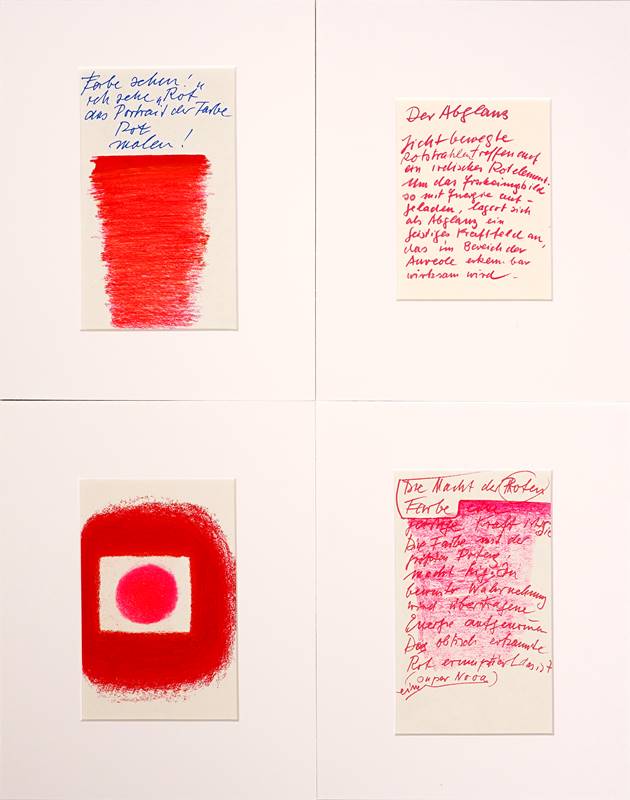 Farbe sehen!
ich sehe „Rot“
das Portrait der Farbe
Rot
malen!
Der Abglanz
Licht bewegte
Rotstrahlen treffen auf
ein irdisches Rotelement.
Um das
so mit Energie auf-
geladen, lagert sich
als Abglanz ein
geistiges Kraftfeld an,
das im Bereich der
Aureole erkennbar
wirksam wird.
Die Macht der Roten
Farbe eine
geistige Kraft
Die Farbe mit der
größten Potenz,
bewusste Wahrnehmung
wird übertragene
Energie aufgenommen
Das optisch erkannte
Rot
eine (super Nova)